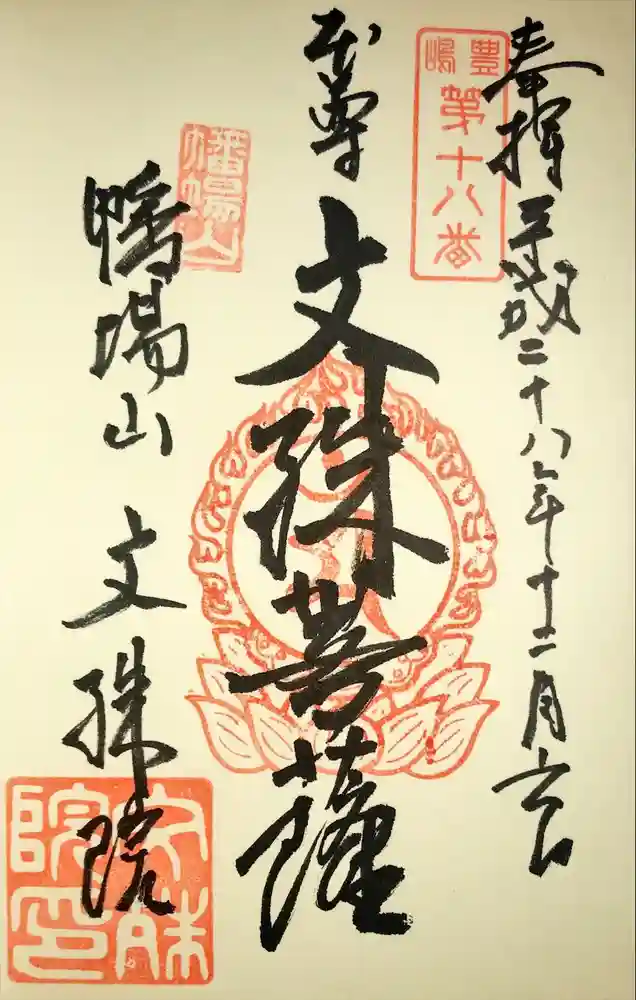 奉拝 平成二十八年十二月六日
豊嶋
第十八番
本尊
文殊菩薩
幡場山
幡場山 文殊院
文殊
院印